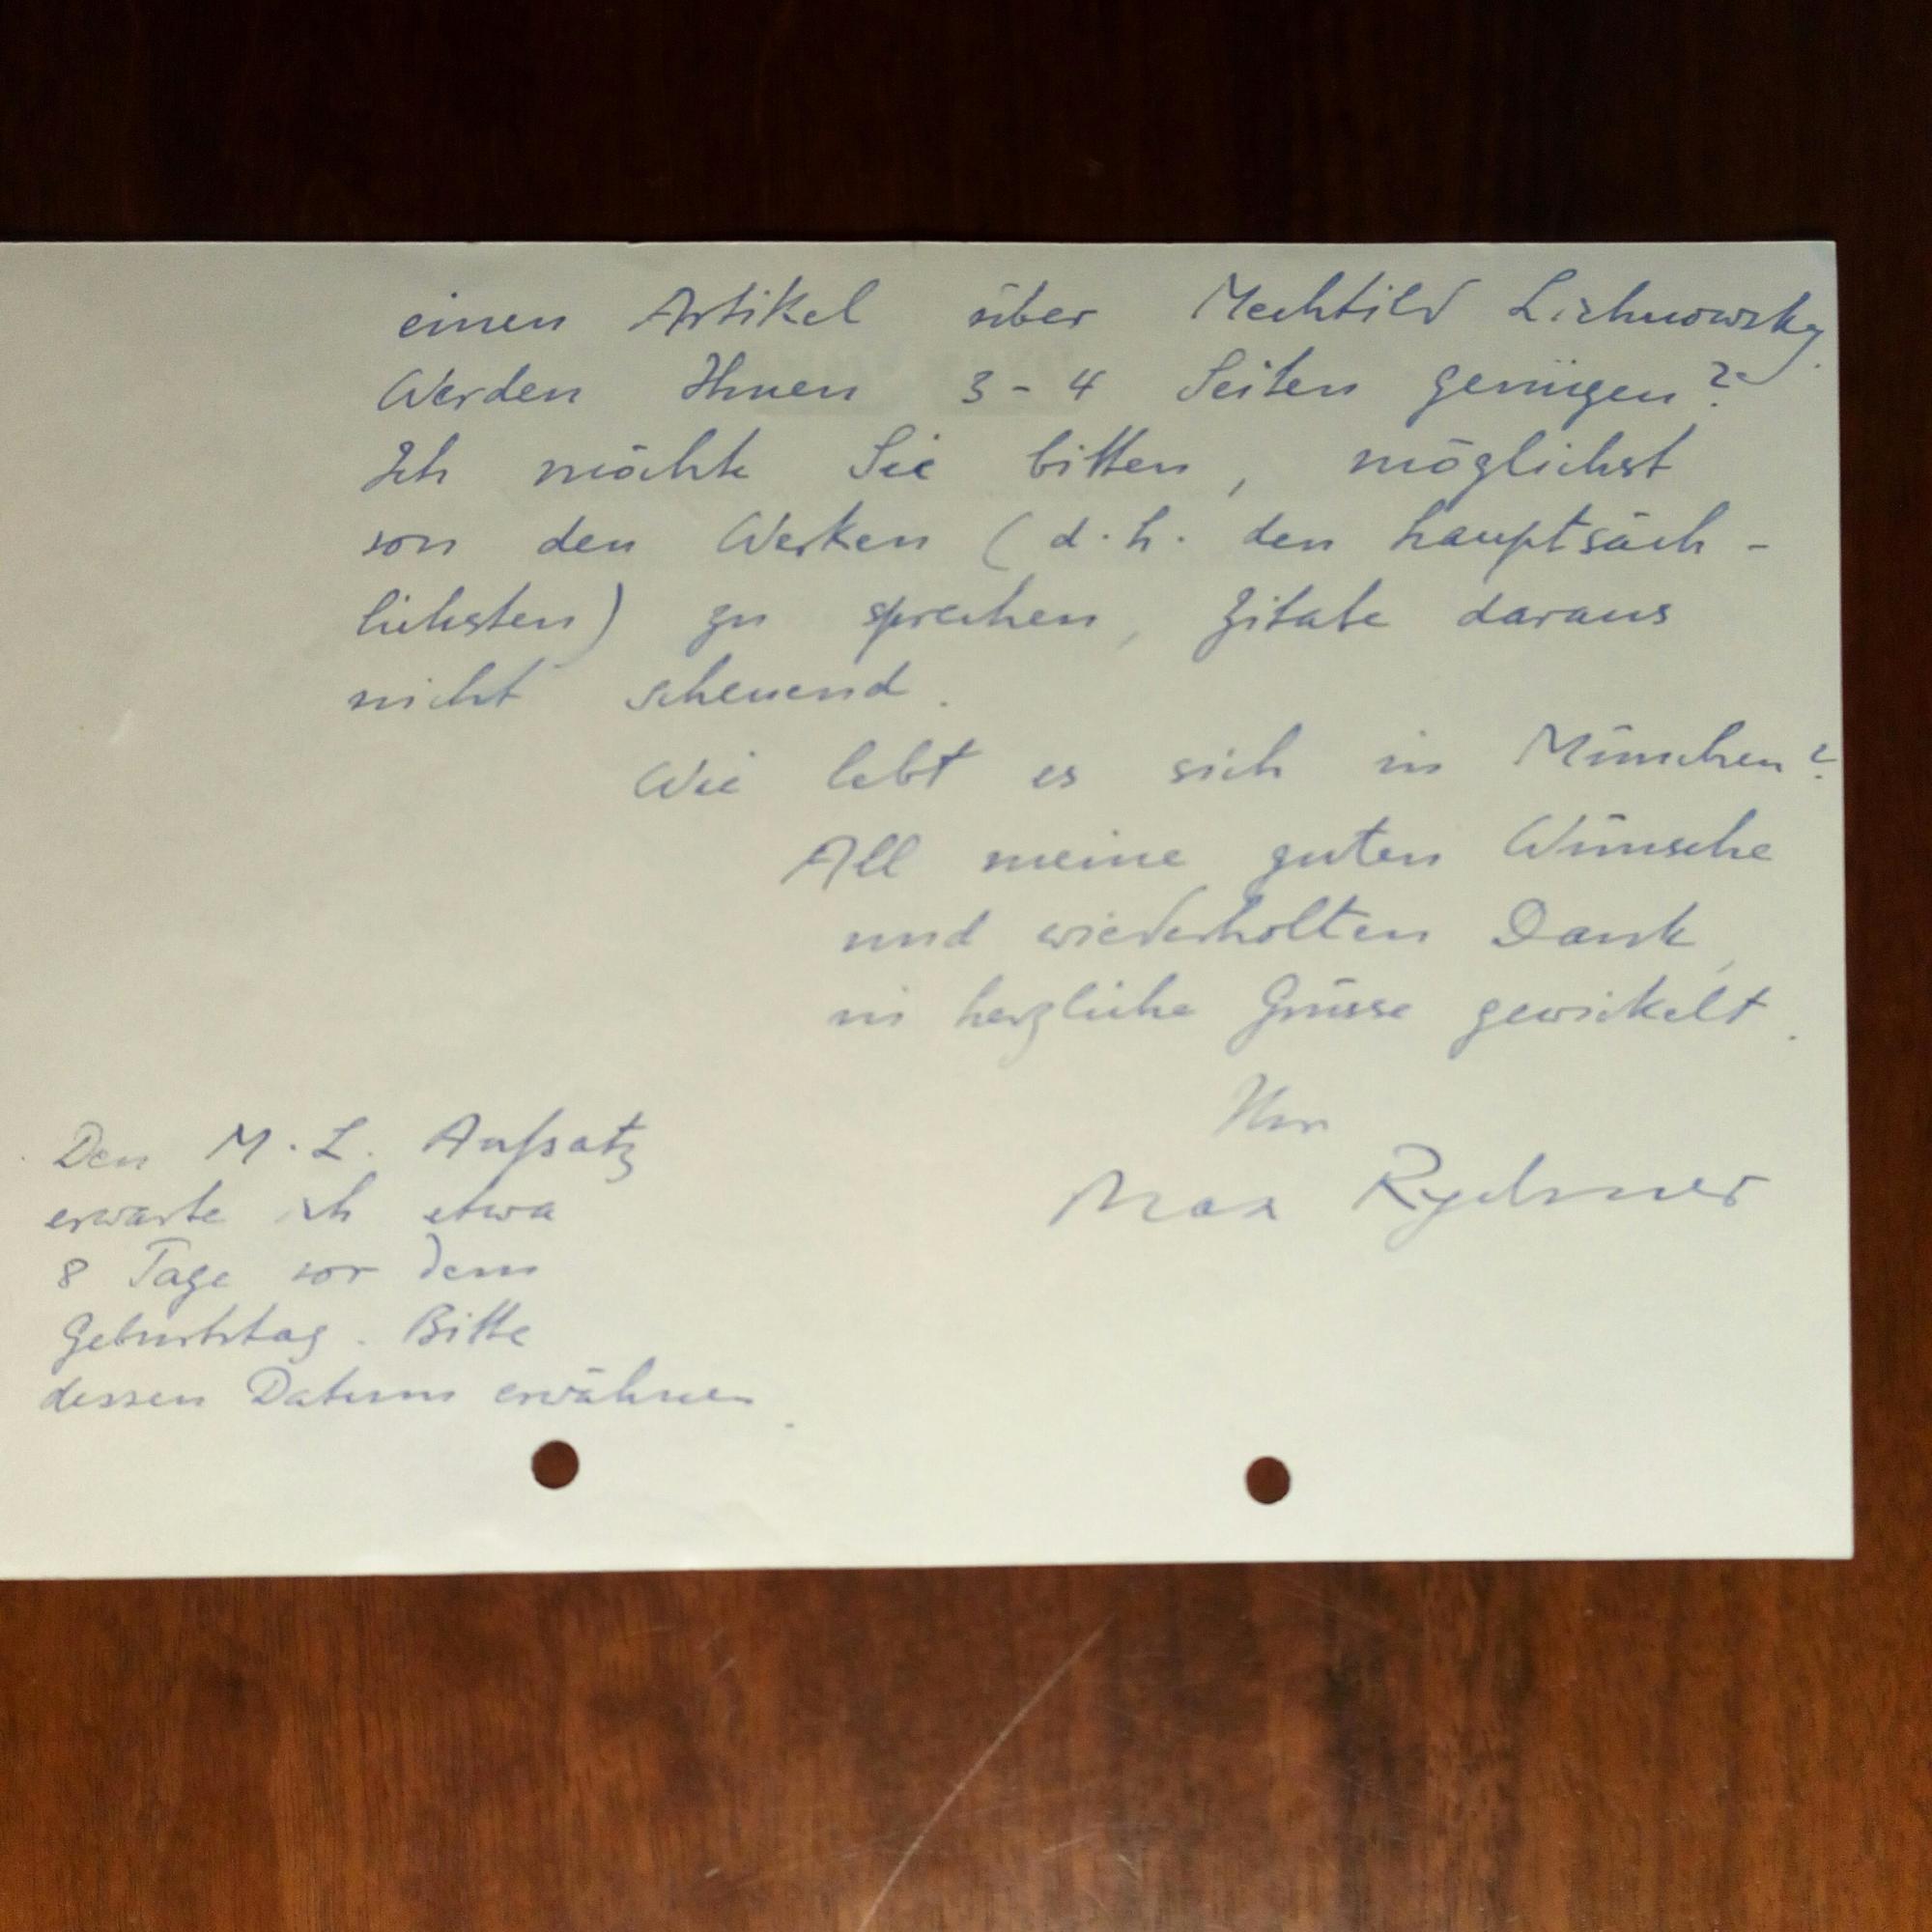 einen Artikel über Mechtild Lichnowsky.
Werden Ihnen 3-4 Seiten genügen?
Ich möchte Sie bitten, möglichst
von den Werken (d.h. den hauptsäch-
lichsten) zu sprechen, Zitate daraus
nicht scheuend.
Wie lebt es sich in München?
All meine guten Wünsche
und wiederholten Dank,
in herzliche Grüsse gewickelt.
Ihr
Max Rychner
Den M.L. Aufsatz
erwarte ich etwa
8 Tage vor dem
Geburtstag. Bitte
dessen Datum erwähnen.